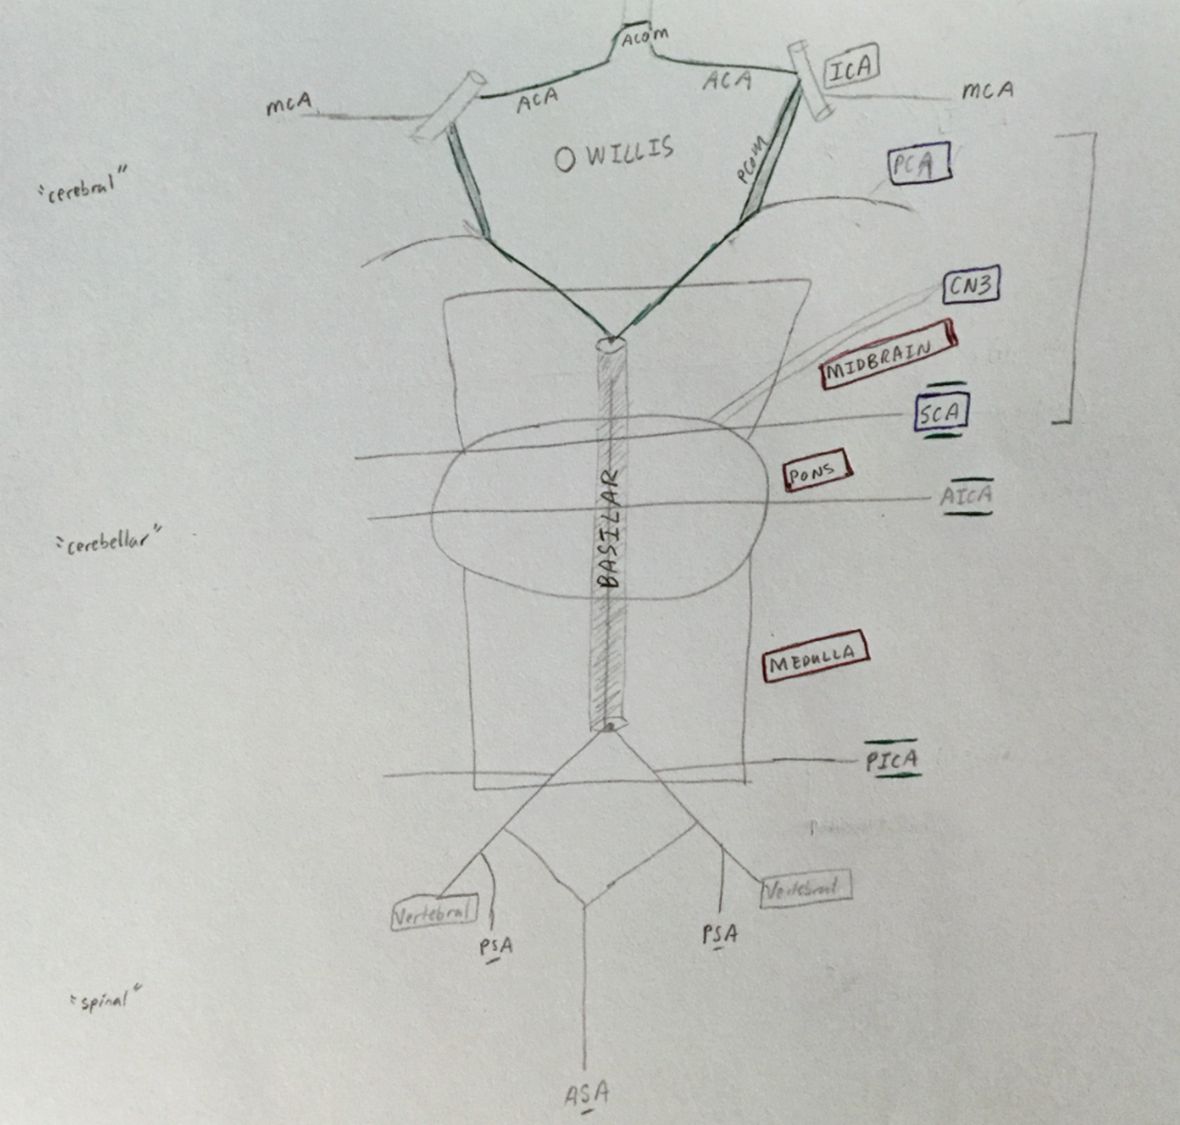 ACOM
ACA
ACA
ICA
MCA
MCA
O WILLIS
PCOM
PCA
"cerebral"
CN3
MIDBRAIN
SCA
PONS
BASILAR
AICA
"cerebellar"
MEDULLA
PICA
Vertebral
Vertebral
PSA
PSA
"spinal"
ASA